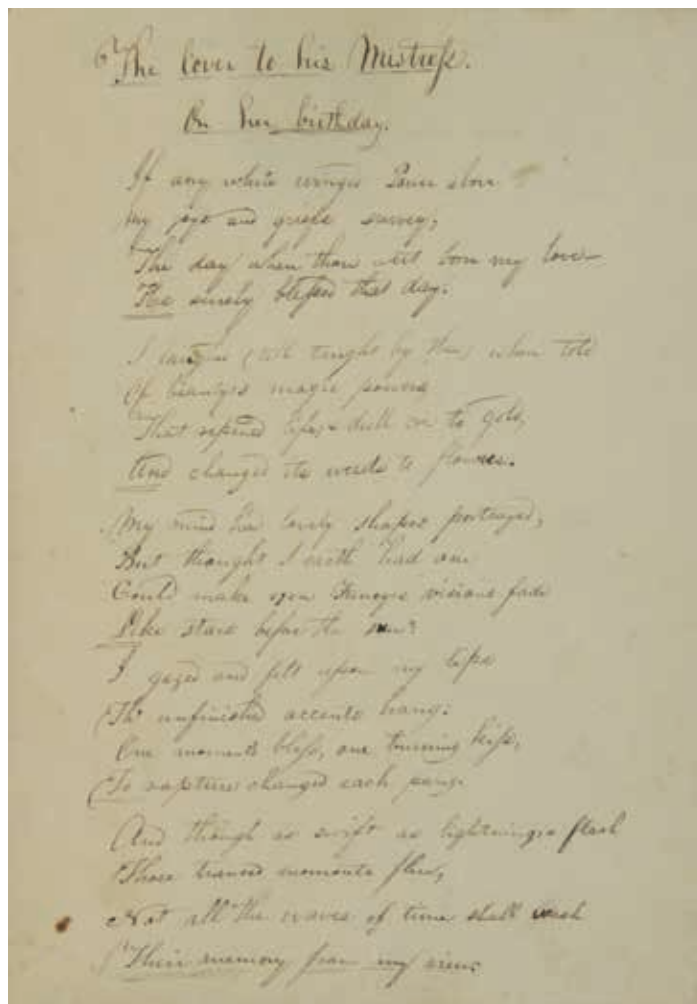 The lover to his Mistress.
On her birthday.
If any white winged Power above
My joys and griefs survey;
The day when thou wert born my love
He surely blessed that day.
I (till taught by thee) when told
Of magic powers
That life,s dull ore to gold,
And changed its weeds to flowers.
My mind had lovely shapes portrayed,
But thought I earth had one
Could make visions fade
Like stars before the sun?
I gazed and felt upon my lips
Th' unfinished accents hang:
One moments bliss, one burning kiss,
To rapture changed each pang.
And though as swift as lightnings flash
Those tranced moments flew,
Not all the waves of time shall wash
Their memory from my view